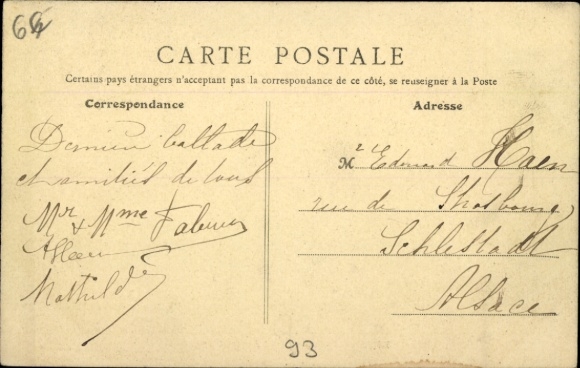 CARTE POSTALE
Certains pays étrangers n'acceptant pas la correspondance de ce côté, se renseigner à la Poste
Correspondance
Dernière ballade
et amitiés de tous
Mr & Mme
Mathilde
Adresse
Mr Edouard Haen
rue de Strasbourg
Schlestadt
Alsace
93